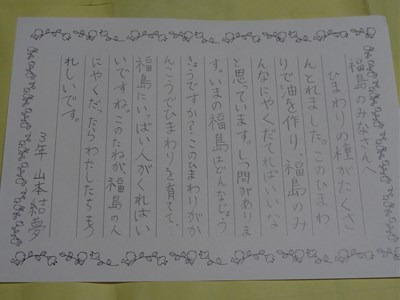 福島のみなさんへ
ひまわりの種がたくさ
んとれました。このひまわ
りで油を作り、福島のみ
んなにやくだてればいいな
と思っています。しつ問がありま
す。いまの福島はどんなじょう
きょうですか？このひまわりがか
んこうでひまわりを育てて、
福島にいっぱい人がくればい
いですね。このたねが、福島の人
にやくだったらわたしたちもう
れしいです。
3年 山本